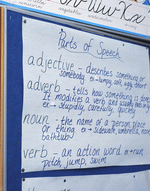 Parts of Speech
adjective - describes something or
somebody ex → lumpy, soft, egg, short
adverb - tells how something is
It modifies a verb and usually
ex → stupidly, carefully, quickly
noun - the name of a person, place
or thing ex → sidewalk, umbrella,
bathtub
verb - an action word ex → run,
pitch, jump, swim